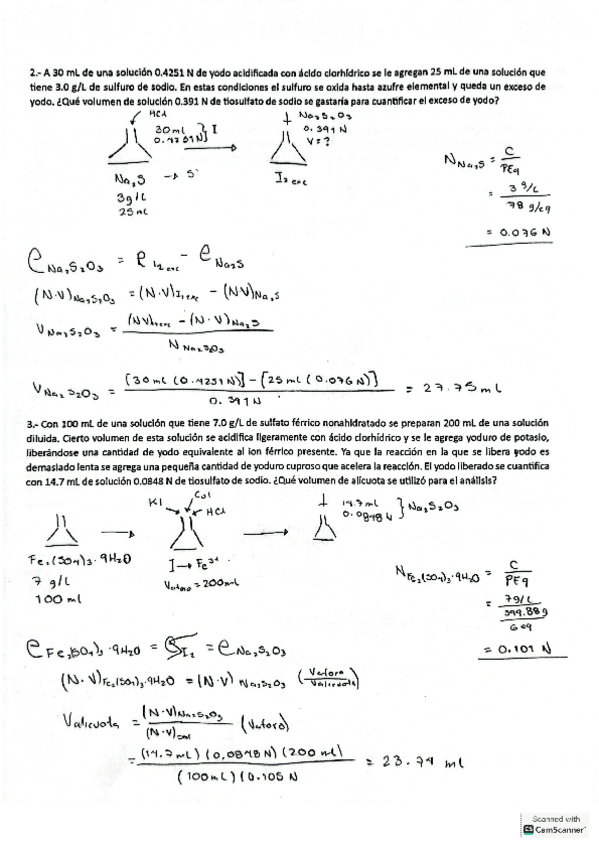 2.- A 30 mL de una solución 0.4251 N de yodo acidificada con ácido clorhídrico se le agregan 25 mL de una solución que
tiene 3.0 g/L de sulfuro de sodio. En estas condiciones el sulfuro se oxida hasta azufre elemental y queda un exceso de
yodo. ¿Qué volumen de solución 0.391 N de tiosulfato de sodio se gastaría para cuantificar el exceso de yodo?
HCl
30 ml } I
0.4251N
Na₂S → S°
3g/L
25 mL
Na₂S₂O₃
0.391N
V=?
I₂ exc
N Na₂S = C / PEq
= 3 g/L / 78 g/eq
= 0.076 N
e Na₂S₂O₃ = e I₂ exc - e Na₂S
(N·V) Na₂S₂O₃ = (N·V) I₂ exc - (N·V) Na₂S
V Na₂S₂O₃ = (N·V) I₂ exc - (N·V) Na₂S / N Na₂S₂O₃
V Na₂S₂O₃ = [30 ml (0.4251N)] - [25 ml (0.076N)] / 0.391N = 27.75 ml
3.- Con 100 mL de una solución que tiene 7.0 g/L de sulfato férrico nonahidratado se preparan 200 mL de una solución
diluida. Cierto volumen de esta solución se acidifica ligeramente con ácido clorhídrico y se le agrega yoduro de potasio,
liberándose una cantidad de yodo equivalente al ion férrico presente. Ya que la reacción en la que se libera yodo es
demasiado lenta se agrega una pequeña cantidad de yoduro cuproso que acelera la reacción. El yodo liberado se cuantifica
con 14.7 mL de solución 0.0848 N de tiosulfato de sodio. ¿Qué volumen de alícuota se utilizó para el análisis?
KI
CuI
HCl
14.7 ml
0.0848 N } Na₂S₂O₃
Fe₂(SO₄)₃·9H₂O
7 g/L
100 ml
I → Fe³⁺
Vaforo = 200ml
N Fe₂(SO₄)₃·9H₂O = C / PEq
= 7g/L / 399.88g / 6 eq
= 0.101 N
e Fe₂(SO₄)₃·9H₂O = e I₂ = e Na₂S₂O₃
(N·V) Fe₂(SO₄)₃·9H₂O = (N·V) Na₂S₂O₃ (Vaforo / Valicuota)
Valicuota = (N·V) Na₂S₂O₃ / (N·V) sal (Vaforo)
= (14.7 ml) (0.0848 N) (200 ml) / (100 mL) (0.105 N) = 23.74 ml
Scanned with
CS CamScanner